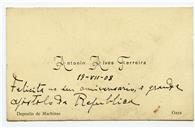 Antonio Alves Ferreira
19-VII-08
Felicita no seu anniversario, o grande
apostolo da Republica
Deposito de Machinas
Gaya